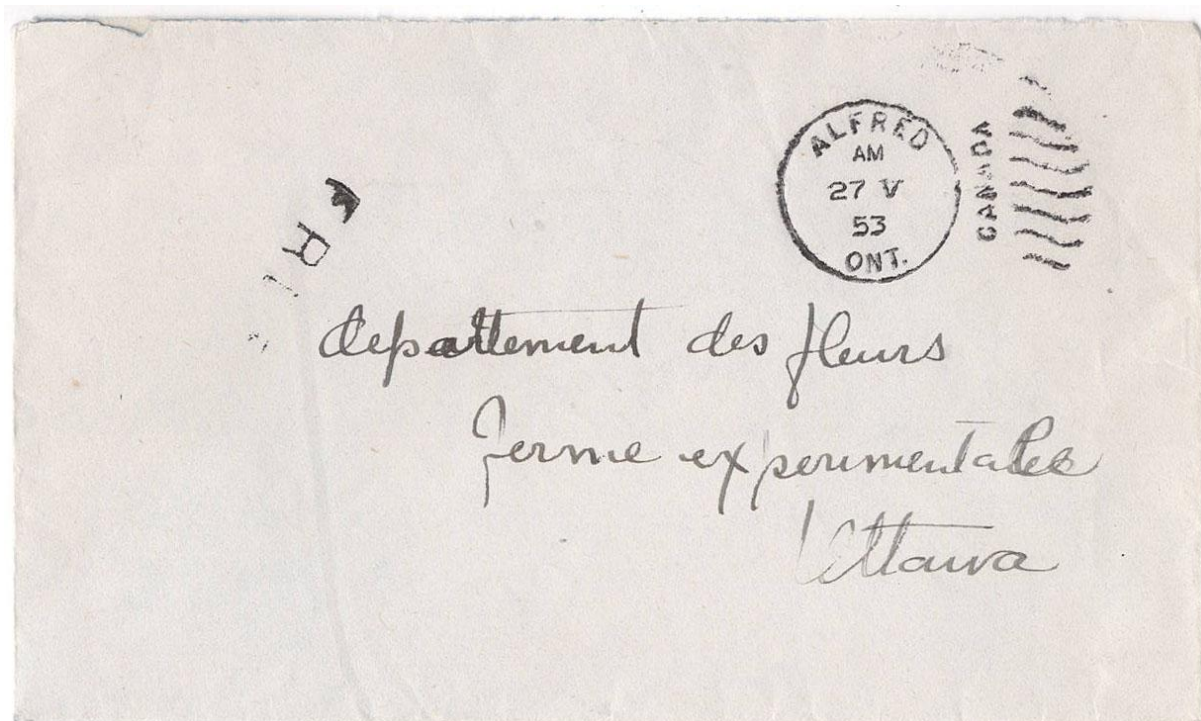 ALFRED
AM
27 V
53
ONT.
CANADA
departement des fleurs
ferme experimentale
Ottawa